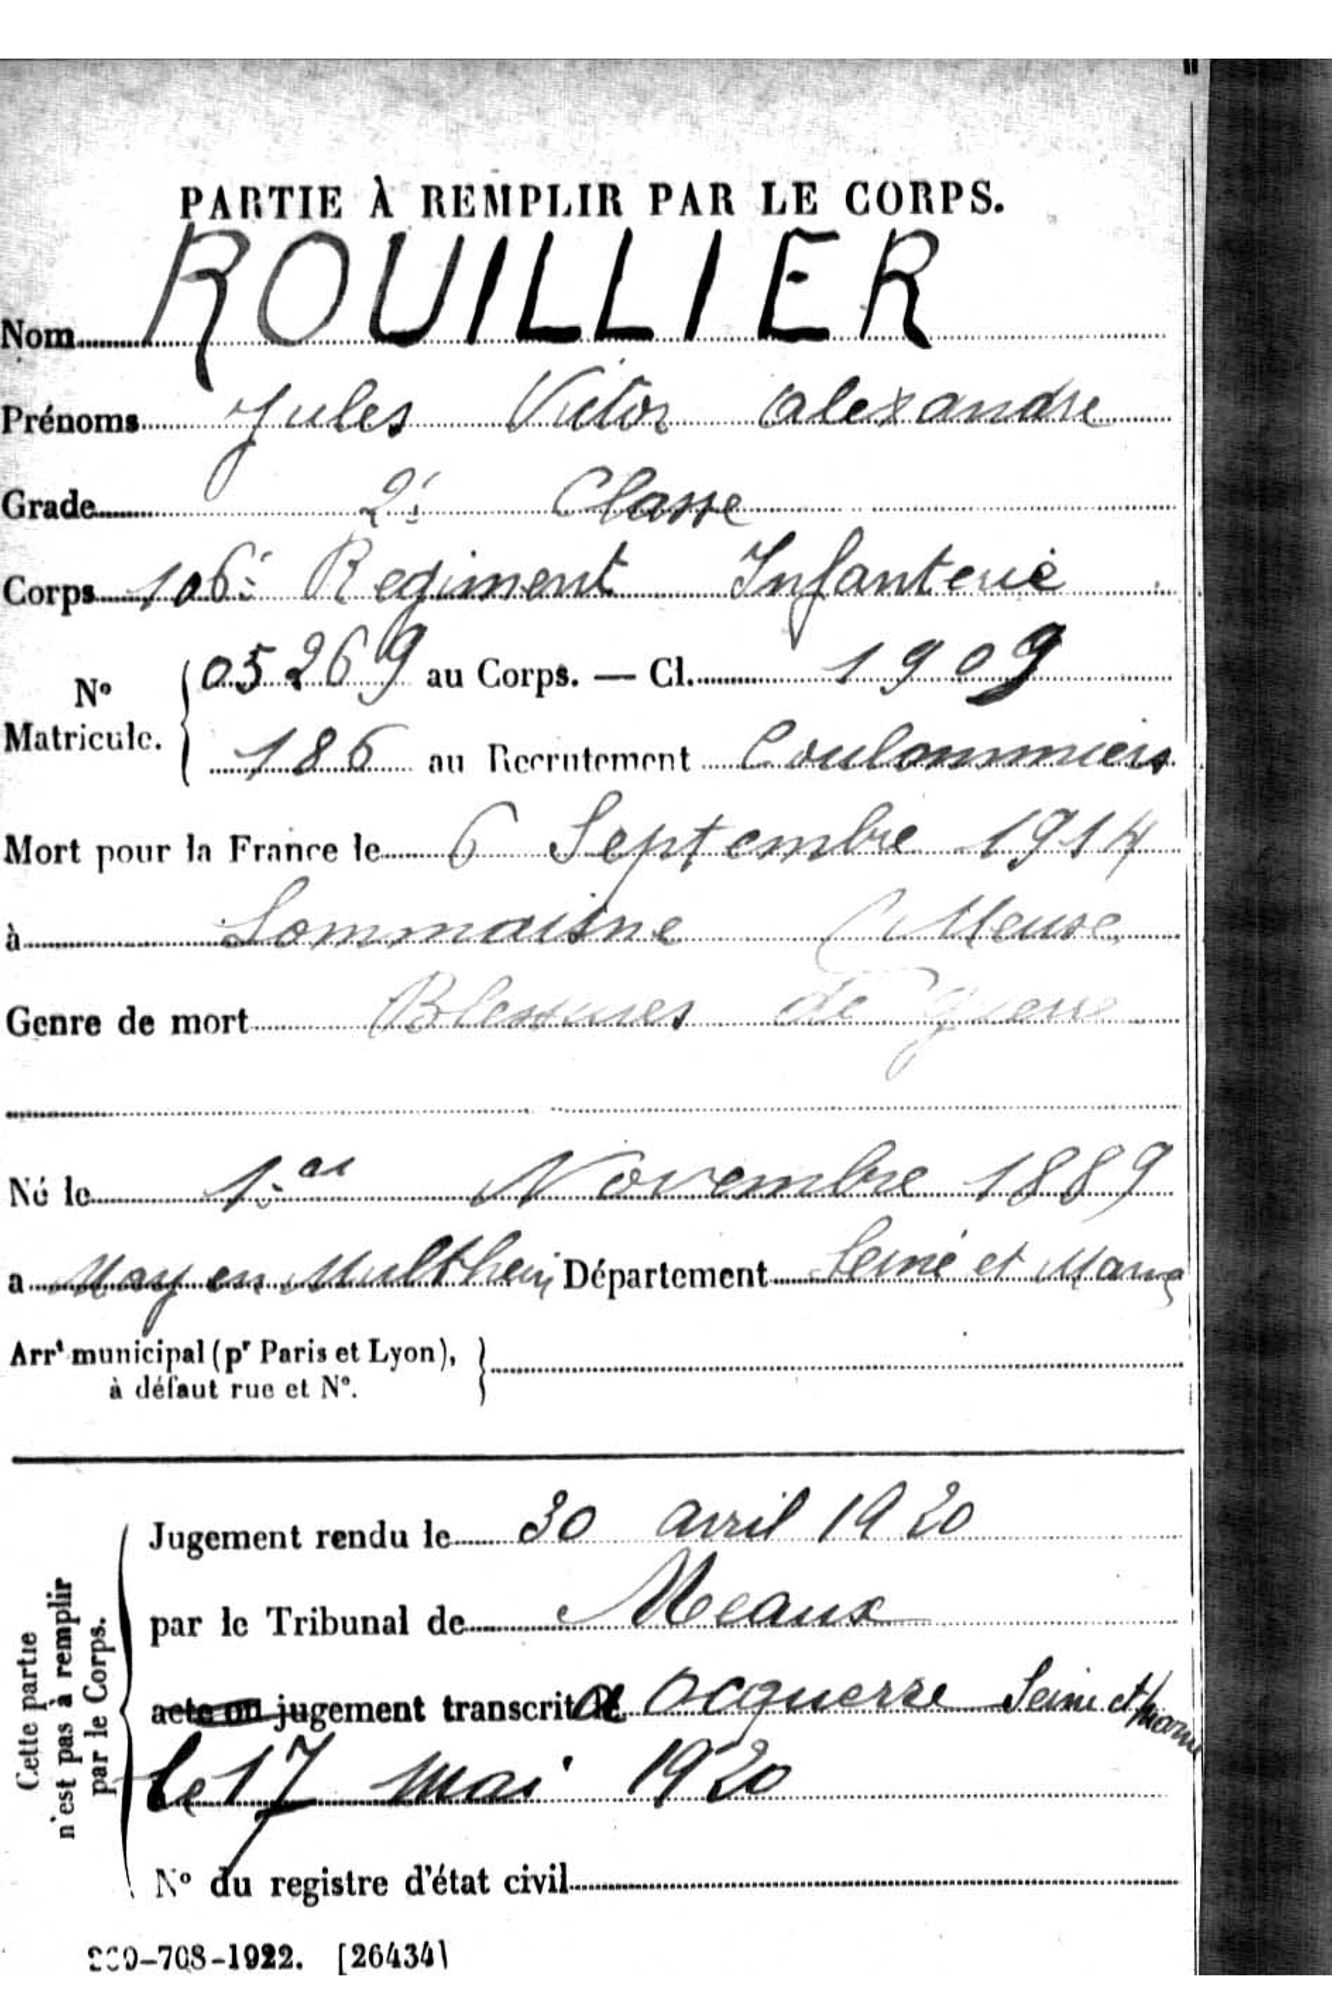 PARTIE À REMPLIR PAR LE CORPS.
Nom ROUILLIER
Prénoms Jules Victor Alexandre
Grade 2è Classe
Corps 106è Regiment Infanterie
N° Matricule. { 05269 au Corps. — Cl. 1909
186 au Recrutement Coulommiers
Mort pour la France le 6 Septembre 1914
à Sommaisne (Meuse
Genre de mort Blessures de guerre
Né le 1.er Novembre 1889
a May en Multhein Département Seine et Marne
Arrt municipal (pr Paris et Lyon), }
à défaut rue et N°.
Cette partie n'est pas à remplir par le Corps.
Jugement rendu le 30 avril 1920
par le Tribunal de Meaux
acte ou jugement transcrit à Ocquerre Seine et Marne
le 17 mai 1920
N° du registre d'état civil
-708-1922. [26434]